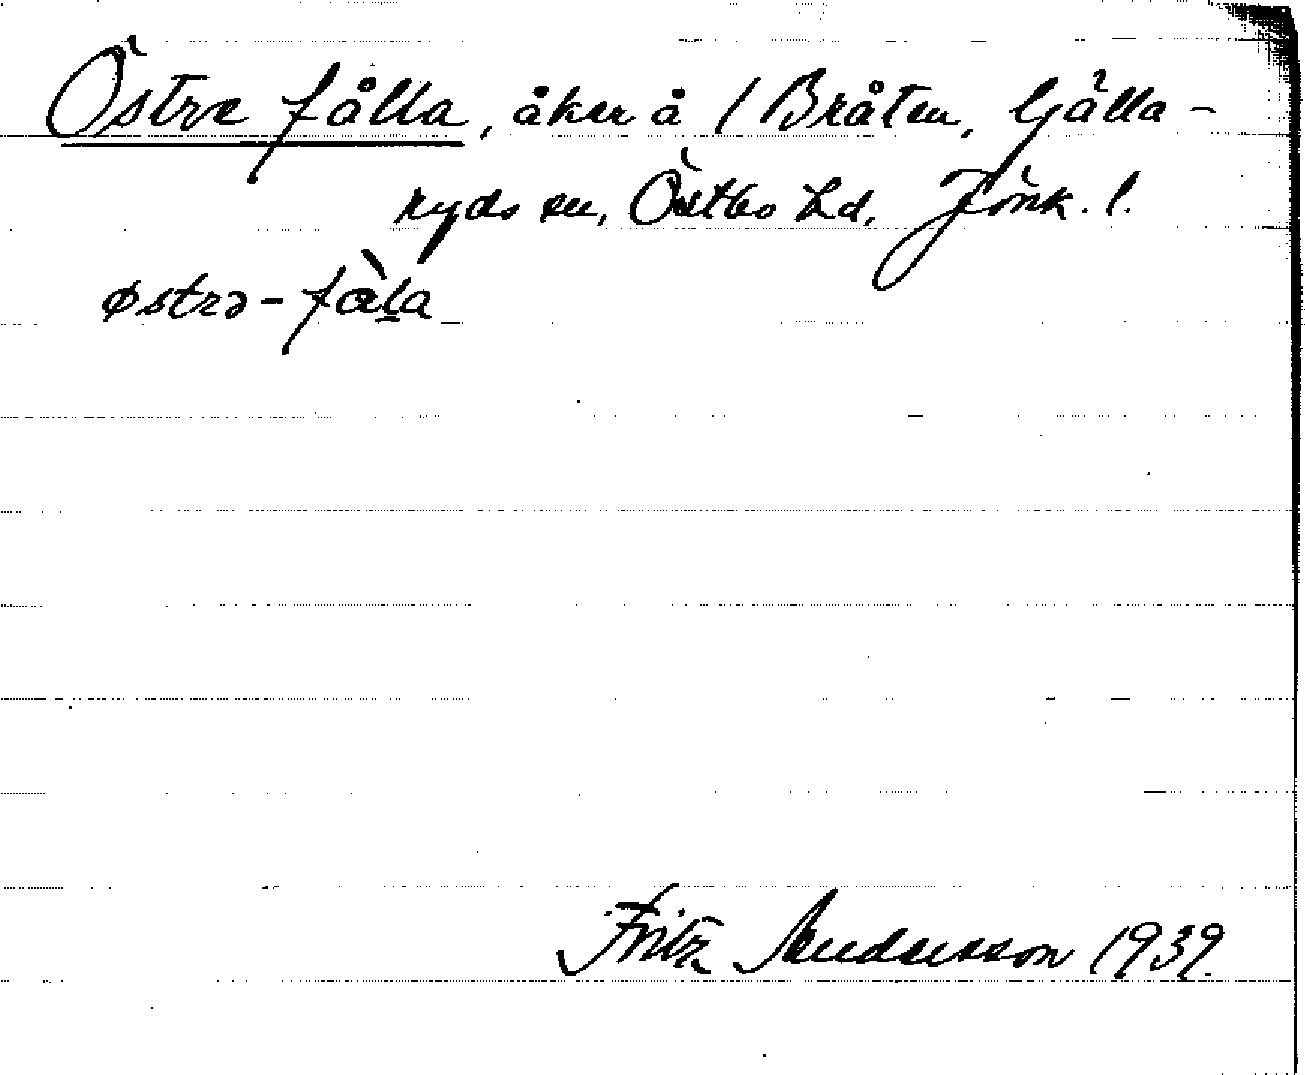 Östra fålla, åker å 1 Bråten, Gälla-
ryds sn, Östbo hd, Jönk. l.
østrə-fàl̠a
Fritz Andersson 1939.